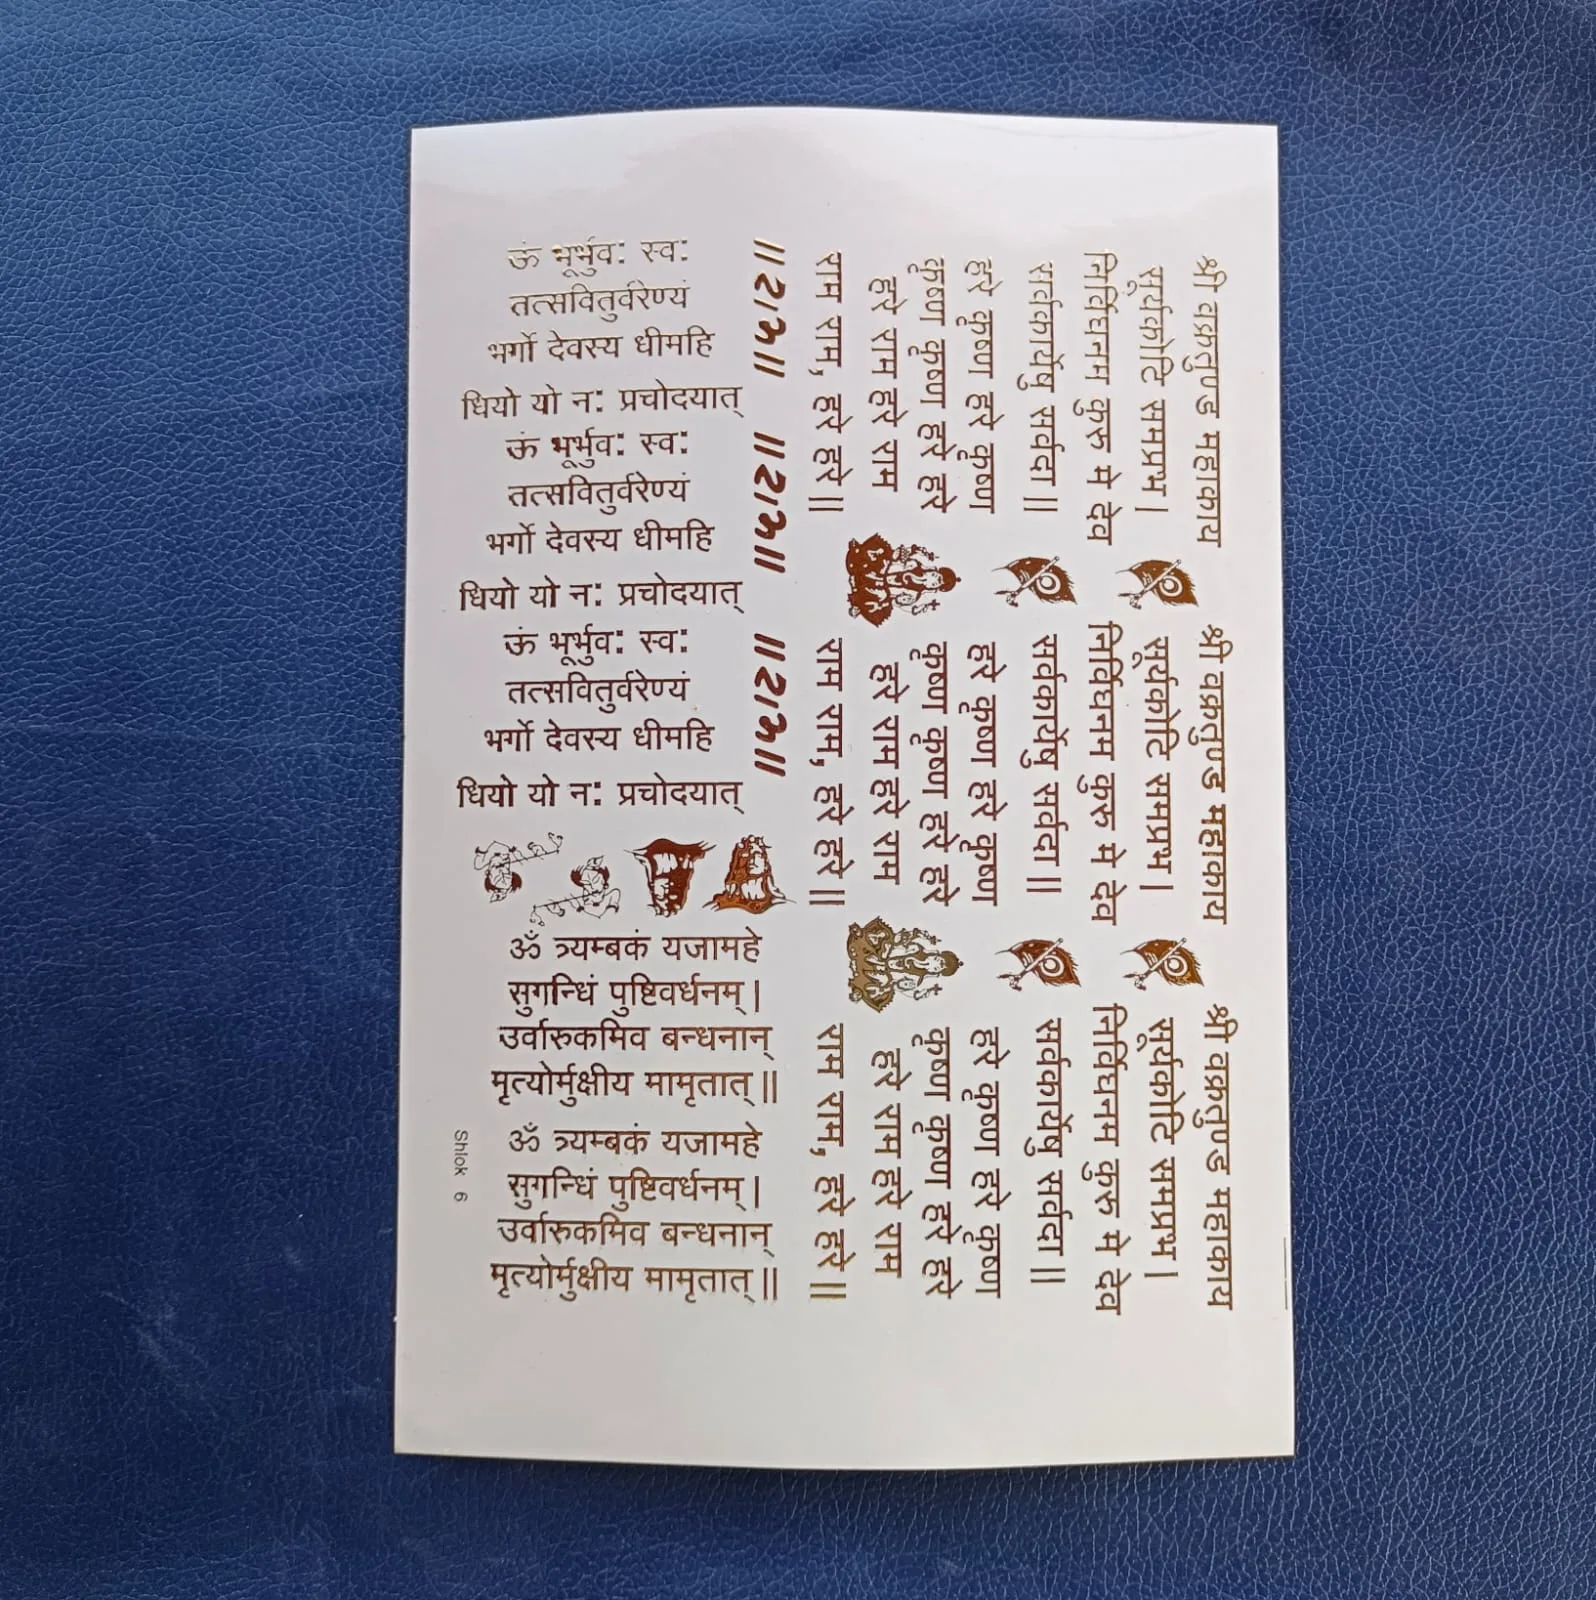 ऊं भूर्भुवः स्वः
तत्सवितुर्वरेण्यं
भर्गो देवस्य धीमहि
धियो यो नः प्रचोदयात्
ऊं भूर्भुवः स्वः
तत्सवितुर्वरेण्यं
भर्गो देवस्य धीमहि
धियो यो नः प्रचोदयात्
ऊं भूर्भुवः स्वः
तत्सवितुर्वरेण्यं
भर्गो देवस्य धीमहि
धियो यो नः प्रचोदयात्
ॐ त्र्यम्बकं यजामहे
सुगन्धिं पुष्टिवर्धनम् |
उर्वारुकमिव बन्धनान्
मृत्योर्मुक्षीय मामृतात् ||
ॐ त्र्यम्बकं यजामहे
सुगन्धिं पुष्टिवर्धनम् |
उर्वारुकमिव बन्धनान्
मृत्योर्मुक्षीय मामृतात् ||
॥राम॥
॥राम॥
॥राम॥
श्री वक्रतुण्ड महाकाय
सूर्यकोटि समप्रभ |
निर्विघनम कुरु मे देव
सर्वकार्येषु सर्वदा ||
हरे कृष्ण हरे कृष्ण
कृष्ण कृष्ण हरे हरे
हरे राम हरे राम
राम राम, हरे हरे ||
श्री वक्रतुण्ड महाकाय
सूर्यकोटि समप्रभ |
निर्विघनम कुरु मे देव
सर्वकार्येषु सर्वदा ||
हरे कृष्ण हरे कृष्ण
कृष्ण कृष्ण हरे हरे
हरे राम हरे राम
राम राम, हरे हरे ||
श्री वक्रतुण्ड महाकाय
सूर्यकोटि समप्रभ |
निर्विघनम कुरु मे देव
सर्वकार्येषु सर्वदा ||
हरे कृष्ण हरे कृष्ण
कृष्ण कृष्ण हरे हरे
हरे राम हरे राम
राम राम, हरे हरे ||
Shlok 6